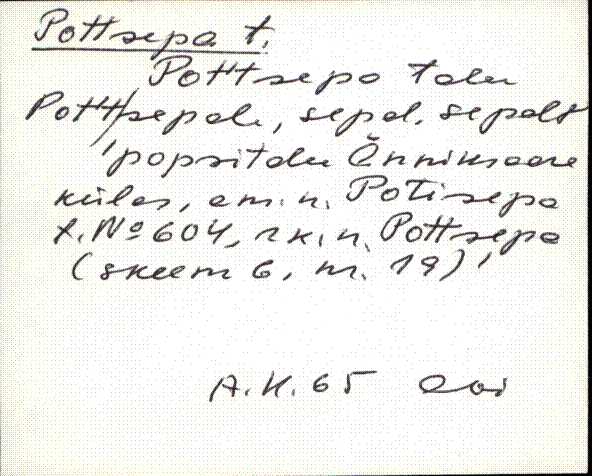 Pottsepa t.
Pottsepa talu
Pott/sepale, sepal, sepalt
'popsitalu Õnniksaare
külas, am. n. Potisepa
t. No 604, rk. n. Pottsepa
(skeem 6, nr. 19)'
A.K. 65